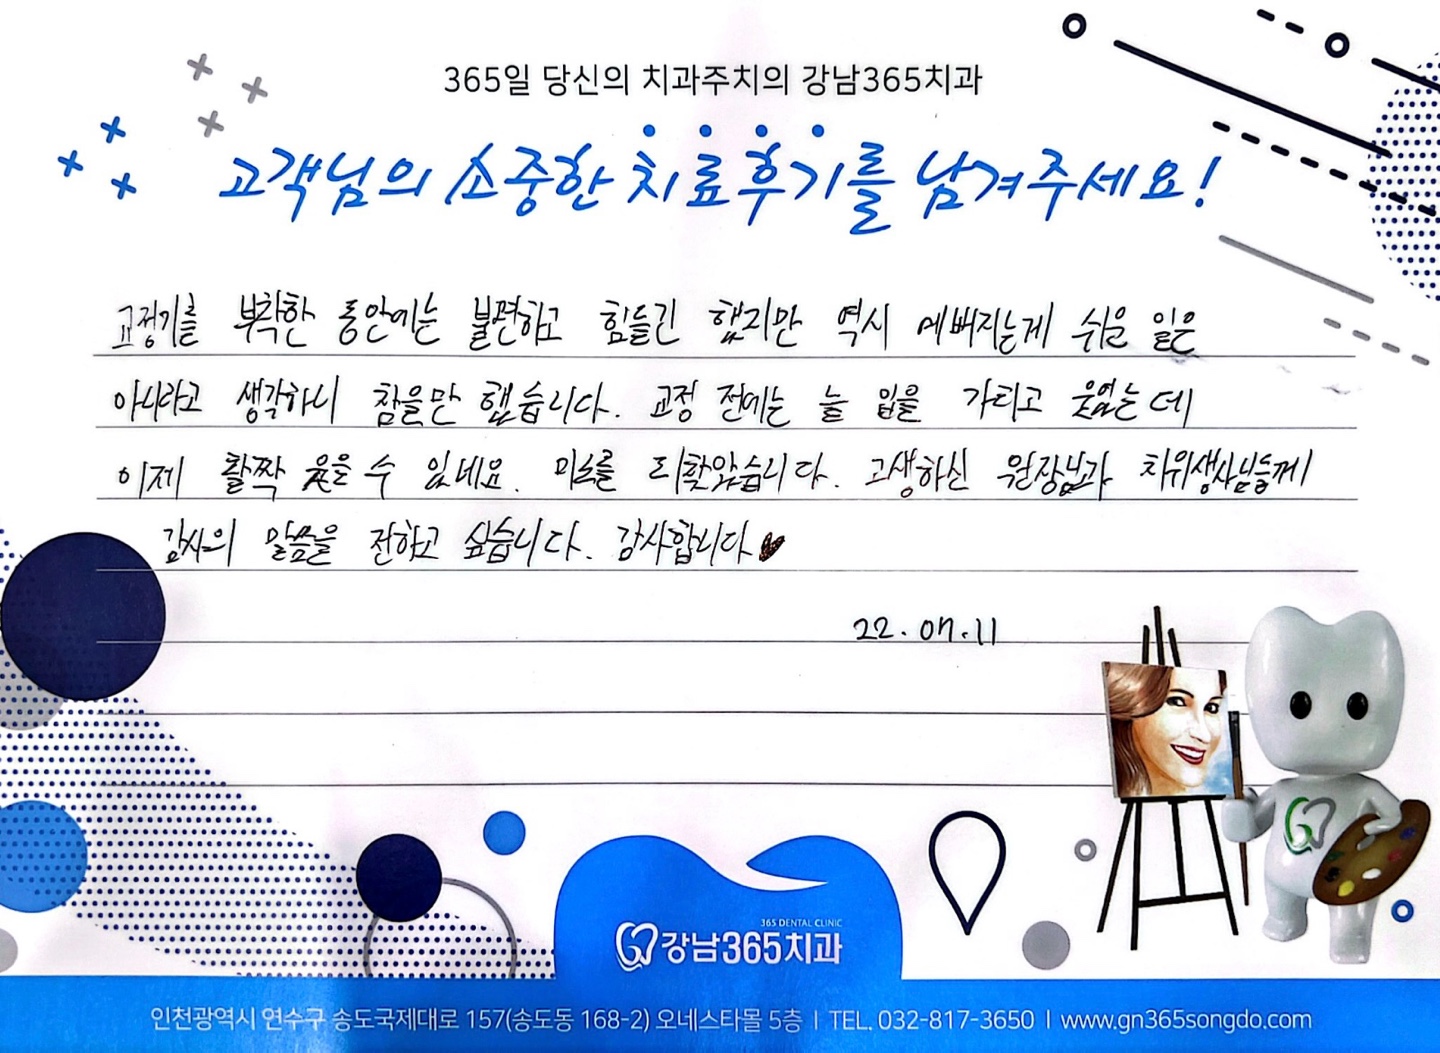 365일 당신의 치과주치의 강남365치과
고객님의 소중한 치료후기를 남겨주세요!
교정기를 부착한 동안에는 불편하고 힘들긴 했지만 역시 예뻐지는게 쉬운 일은
아니라고 생각하니 참을만 했습니다. 교정 전에는 늘 입을 가리고 웃었는데
이제 활짝 웃을 수 있네요. 미소를 되찾았습니다. 고생하신 원장님과 치위생사님들께
감사의 말씀을 전하고 싶습니다. 감사합니다♥
22.07.11
365 DENTAL CLINIC
강남365치과
인천광역시 연수구 송도국제대로 157(송도동 168-2) 오네스타몰 5층 | TEL. 032-817-3650 | www.gn365songdo.com